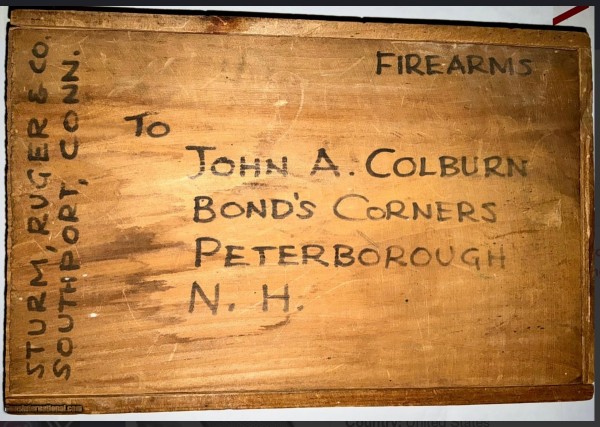 STURM, RUGER & CO.
SOUTHPORT, CONN.
FIREARMS
TO
JOHN A. COLBURN
BOND'S CORNERS
PETERBOROUGH
N. H.
Country: United States